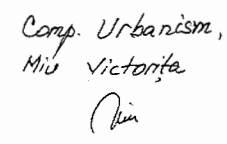 Comp. Urbanism,
Miu Victorița